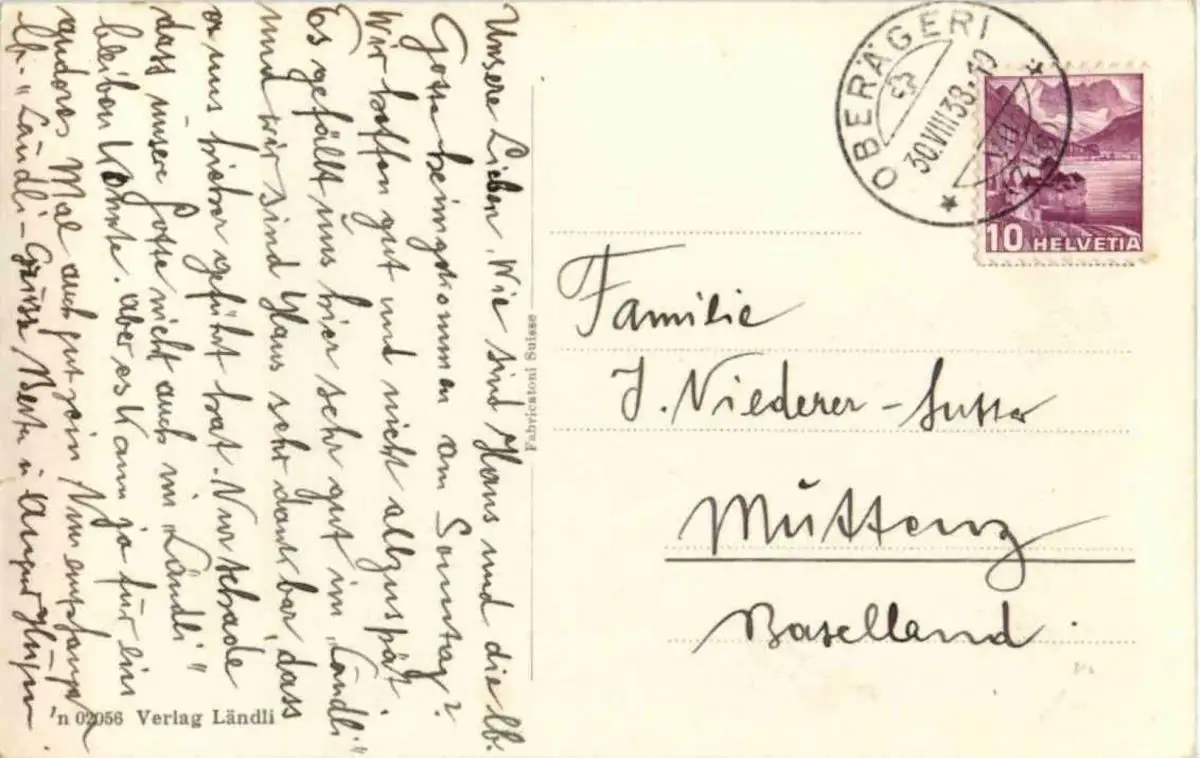 Unsere Lieben, Wie sind Hans und die lb.
Gotte heimgekommen am Sonntag?
Wir hoffen gut und nicht allzuspät.
Es gefällt uns hier sehr gut im „Ländli"
und wir sind Hans sehr dankbar, dass
er uns hieher geführt hat. Nur schade
dass unsere Gotte nicht auch im „Ländli"
bleiben konnte. aber es kann ja für ein
anderes Mal auch gut sein. Nun empfangen
lb. „Ländli-Grüsse Berta u.
'n 02056 Verlag Ländli
Fabricatoni Suisse
OBERÄGERI
30.VIII.38.-10
10 HELVETIA
Familie
J. Niederer-Sutter
Muttenz
Baselland.